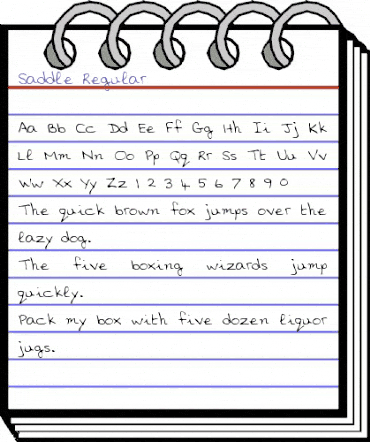 Saddle Regular
Aa Bb Cc Dd Ee Ff Gg Hh Ii Jj Kk
Ll Mm Nn Oo Pp Qq Rr Ss Tt Uu Vv
Ww Xx Yy Zz 1 2 3 4 5 6 7 8 9 0
The quick brown fox jumps over the
lazy dog.
The five boxing wizards jump
quickly.
Pack my box with five dozen liquor
jugs.